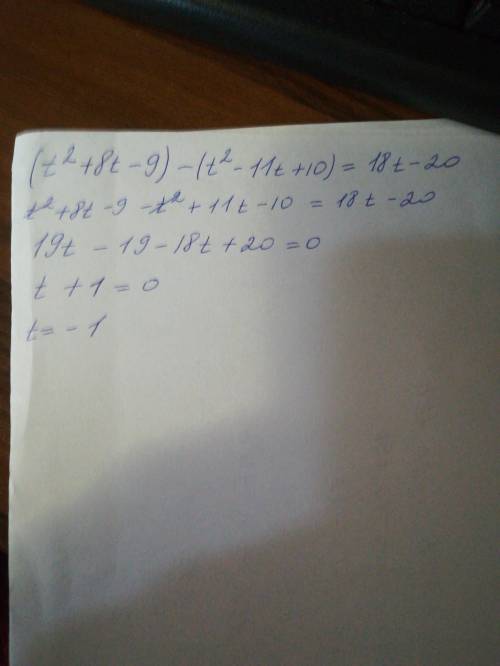 (t²+8t-9)-(t²-11t+10)=18t-20
t²+8t-9-t²+11t-10=18t-20
19t-19-18t+20=0
t+1=0
t=-1